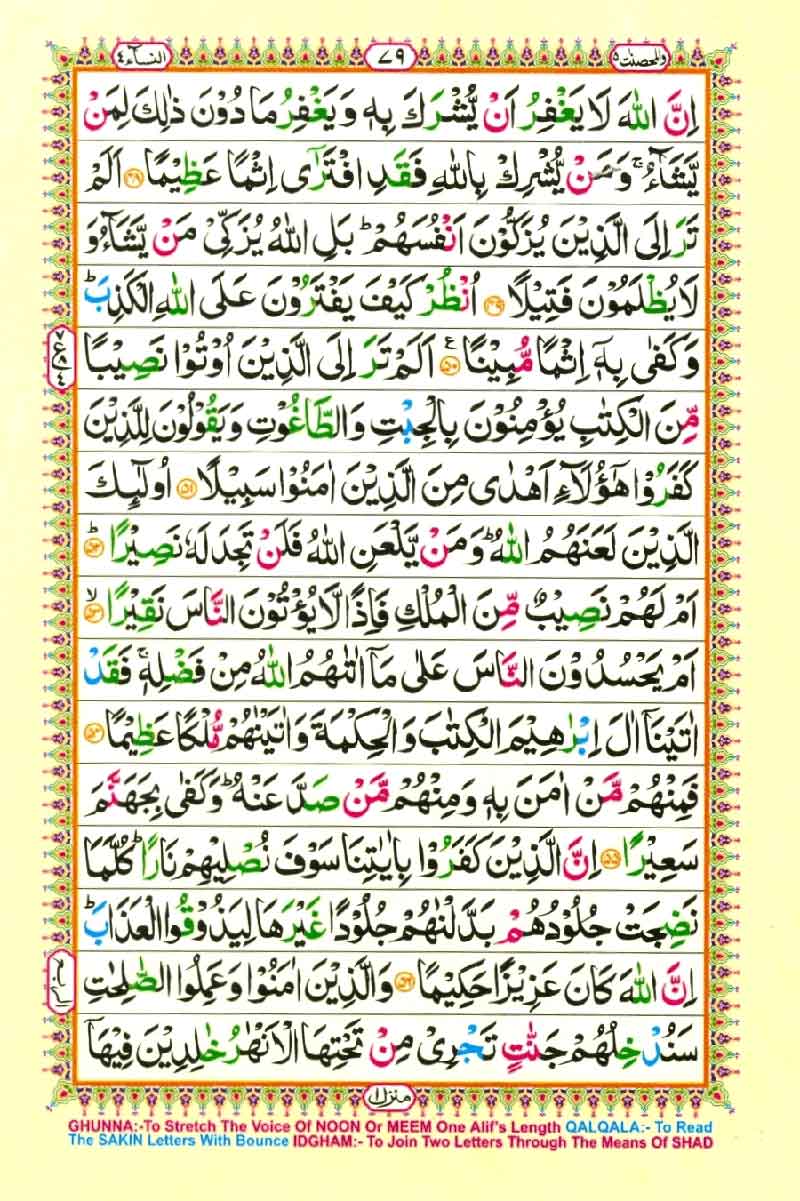 والمحصنت ۵
۷۹
النسآء ۴
اِنَّ اللّٰهَ لَا یَغْفِرُ اَنْ یُّشْرَكَ بِهٖ وَ یَغْفِرُ مَا دُوْنَ ذٰلِكَ لِمَنْ
یَّشَآءُ ۚ وَ مَنْ یُّشْرِكْ بِاللّٰهِ فَقَدِ افْتَرٰۤى اِثْمًا عَظِیْمًا ۝۴۸ اَلَمْ
تَرَ اِلَى الَّذِیْنَ یُزَكُّوْنَ اَنْفُسَهُمْ ؕ بَلِ اللّٰهُ یُزَكِّیْ مَنْ یَّشَآءُ وَ
لَا یُظْلَمُوْنَ فَتِیْلًا ۝۴۹ اُنْظُرْ كَیْفَ یَفْتَرُوْنَ عَلَى اللّٰهِ الْكَذِبَ ؕ
وَ كَفٰى بِهٖۤ اِثْمًا مُّبِیْنًا ۝۵۰ اَلَمْ تَرَ اِلَى الَّذِیْنَ اُوْتُوْا نَصِیْبًا
مِّنَ الْكِتٰبِ یُؤْمِنُوْنَ بِالْجِبْتِ وَ الطَّاغُوْتِ وَ یَقُوْلُوْنَ لِلَّذِیْنَ
كَفَرُوْا هٰۤؤُلَآءِ اَهْدٰى مِنَ الَّذِیْنَ اٰمَنُوْا سَبِیْلًا ۝۵۱ اُولٰٓىِٕكَ
الَّذِیْنَ لَعَنَهُمُ اللّٰهُ ؕ وَ مَنْ یَّلْعَنِ اللّٰهُ فَلَنْ تَجِدَ لَهٗ نَصِیْرًا ۝۵۲ؕ
اَمْ لَهُمْ نَصِیْبٌ مِّنَ الْمُلْكِ فَاِذًا لَّا یُؤْتُوْنَ النَّاسَ نَقِیْرًا ۝۵۳ۙ
اَمْ یَحْسُدُوْنَ النَّاسَ عَلٰى مَاۤ اٰتٰىهُمُ اللّٰهُ مِنْ فَضْلِهٖ ۚ فَقَدْ
اٰتَیْنَاۤ اٰلَ اِبْرٰهِیْمَ الْكِتٰبَ وَ الْحِكْمَةَ وَ اٰتَیْنٰهُمْ مُّلْكًا عَظِیْمًا ۝۵۴
فَمِنْهُمْ مَّنْ اٰمَنَ بِهٖ وَ مِنْهُمْ مَّنْ صَدَّ عَنْهُ ؕ وَ كَفٰى بِجَهَنَّمَ
سَعِیْرًا ۝۵۵ اِنَّ الَّذِیْنَ كَفَرُوْا بِاٰیٰتِنَا سَوْفَ نُصْلِیْهِمْ نَارًا ؕ كُلَّمَا
نَضِجَتْ جُلُوْدُهُمْ بَدَّلْنٰهُمْ جُلُوْدًا غَیْرَهَا لِیَذُوْقُوا الْعَذَابَ ؕ
اِنَّ اللّٰهَ كَانَ عَزِیْزًا حَكِیْمًا ۝۵۶ وَ الَّذِیْنَ اٰمَنُوْا وَ عَمِلُوا الصّٰلِحٰتِ
سَنُدْخِلُهُمْ جَنّٰتٍ تَجْرِیْ مِنْ تَحْتِهَا الْاَنْهٰرُ خٰلِدِیْنَ فِیْهَاۤ
منزل ۱
GHUNNA:-To Stretch The Voice Of NOON Or MEEM One Alif's Length QALQALA:- To Read
The SAKIN Letters With Bounce IDGHAM:- To Join Two Letters Through The Means Of SHAD